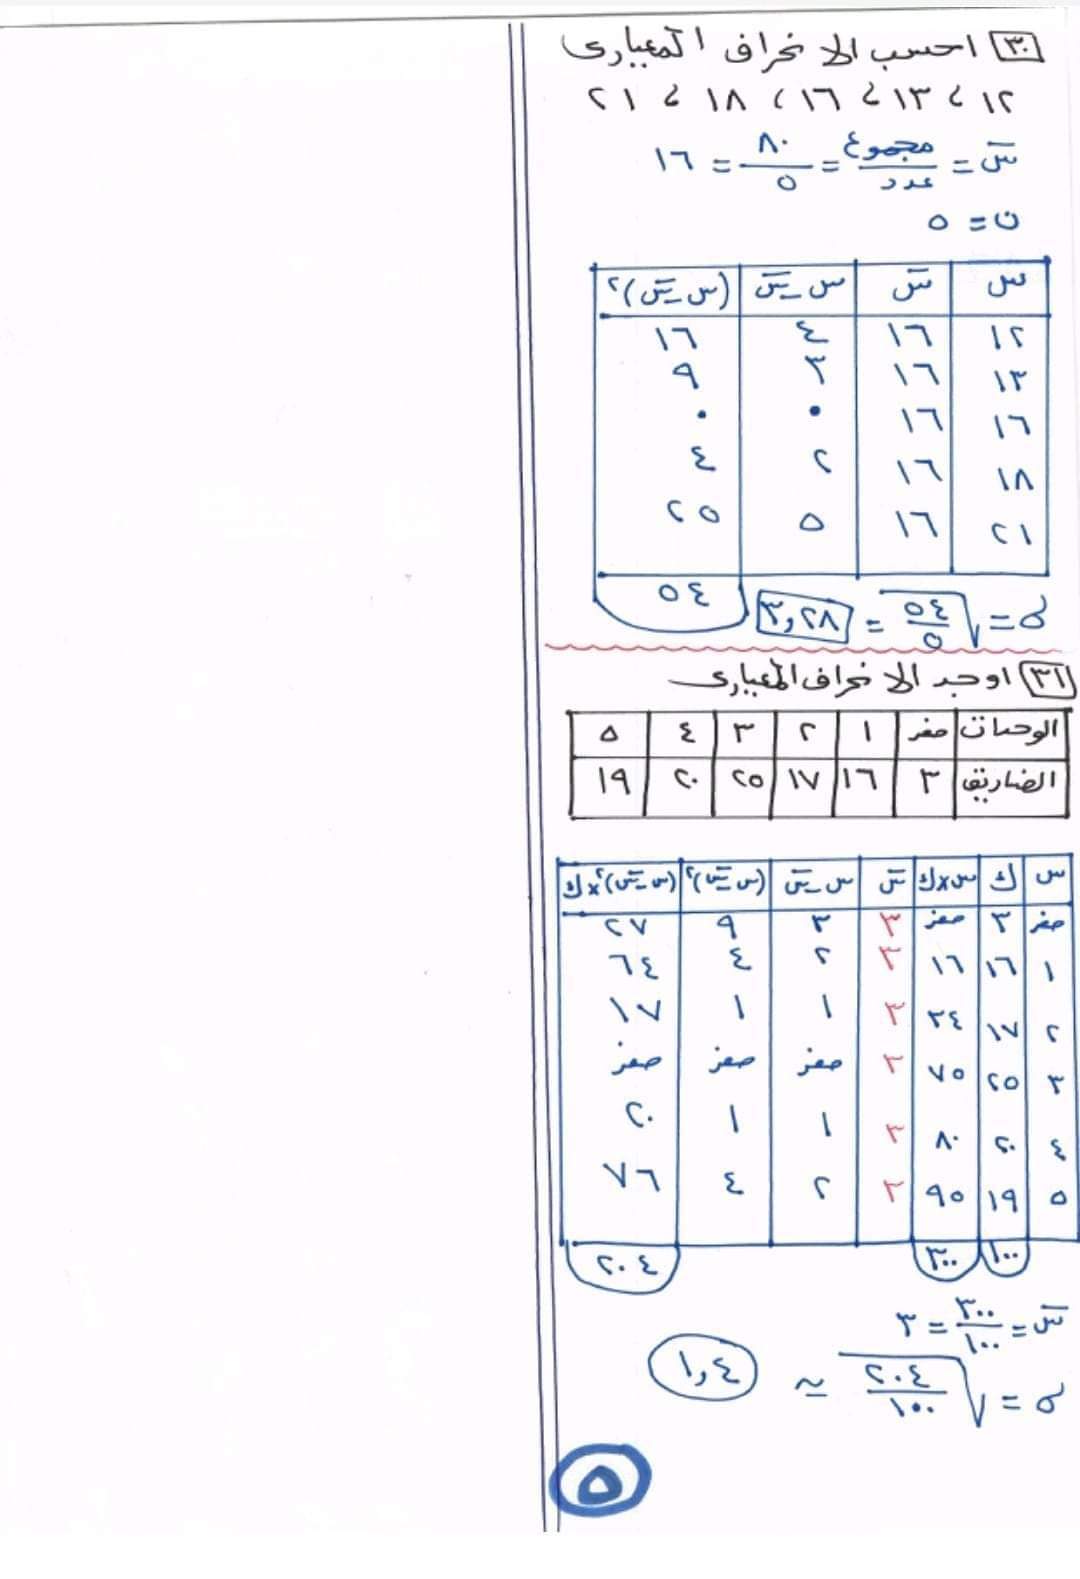 ٣٠ احسب الانحراف المعيارى
١٢ ، ١٣ ، ١٦ ، ١٨ ، ٢١
س̅ = مجموع / عدد = ٨٠ / ٥ = ١٦
ن = ٥
س | س̅ | س - س̅ | (س - س̅)٢
١٢ | ١٦ | ٤ | ١٦
١٣ | ١٦ | ٣ | ٩
١٦ | ١٦ | ٠ | ٠
١٨ | ١٦ | ٢ | ٤
٢١ | ١٦ | ٥ | ٢٥
٥٤
σ = √(٥٤ / ٥) = ٣,٢٨
٣١ اوجد الانحراف المعيارى
الوحدات | صفر | ١ | ٢ | ٣ | ٤ | ٥
الصناديق | ٣ | ١٦ | ١٧ | ٢٥ | ٢٠ | ١٩
س | ك | س×ك | س̅ | س - س̅ | (س - س̅)٢ | (س - س̅)٢×ك
صفر | ٣ | صفر | ٣ | ٣ | ٩ | ٢٧
١ | ١٦ | ١٦ | ٣ | ٢ | ٤ | ٦٤
٢ | ١٧ | ٣٤ | ٣ | ١ | ١ | ١٧
٣ | ٢٥ | ٧٥ | ٣ | صفر | صفر | صفر
٤ | ٢٠ | ٨٠ | ٣ | ١ | ١ | ٢٠
٥ | ١٩ | ٩٥ | ٣ | ٢ | ٤ | ٧٦
١٠٠ | ٣٠٠ | ٢٠٤
س̅ = ٣٠٠ / ١٠٠ = ٣
σ = √(٢٠٤ / ١٠٠) ≃ ١,٤
٥